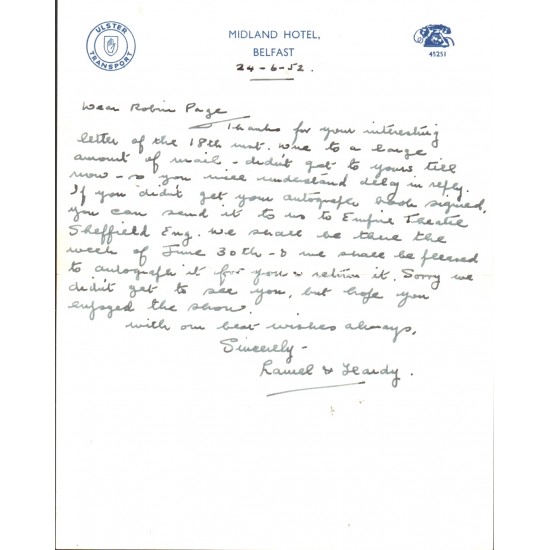 ULSTER
TRANSPORT
MIDLAND HOTEL,
BELFAST
45251
24-6-52.
Dear Robin Page
Thanks for your interesting
letter of the 18th inst. Due to a large
amount of mail - didn't get to yours till
now - so you will understand delay in reply.
If you didn't get your autograph book signed,
you can send it to us to Empire Theatre
Sheffield Eng. we shall be there the
week of June 30th - & we shall be pleased
to autograph it for you & return it. Sorry we
didn't get to see you, but hope you
enjoyed the show.
with our best wishes always,
Sincerely -
Laurel & Hardy.